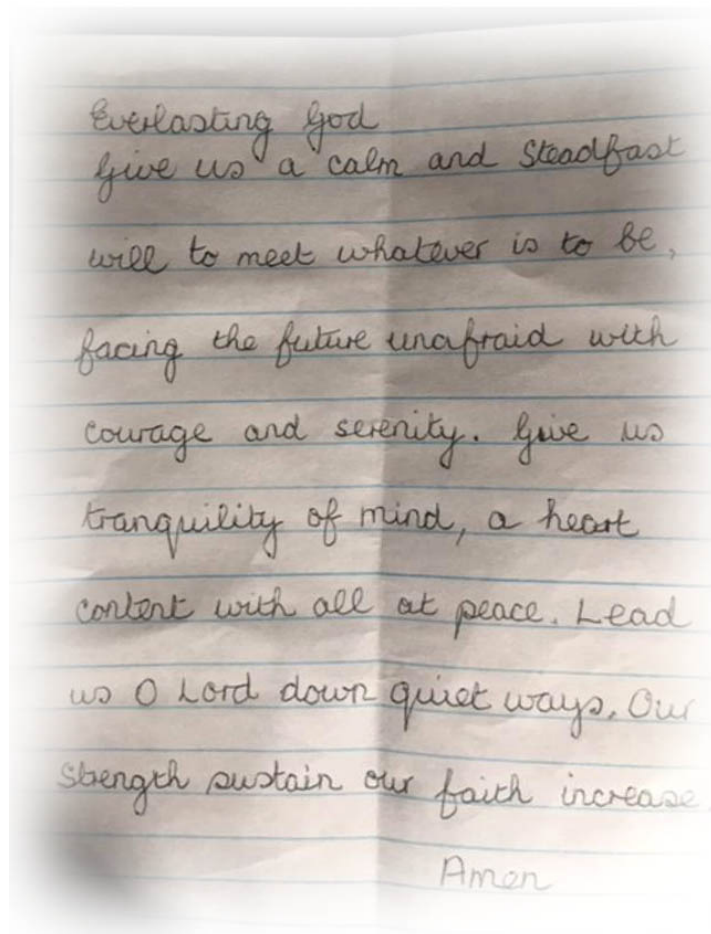 Everlasting God
Give us a calm and Steadfast
will to meet whatever is to be,
facing the future unafraid with
courage and serenity. Give us
tranquility of mind, a heart
content with all at peace. Lead
us O Lord down quiet ways. Our
Strength sustain our faith increase.
Amen